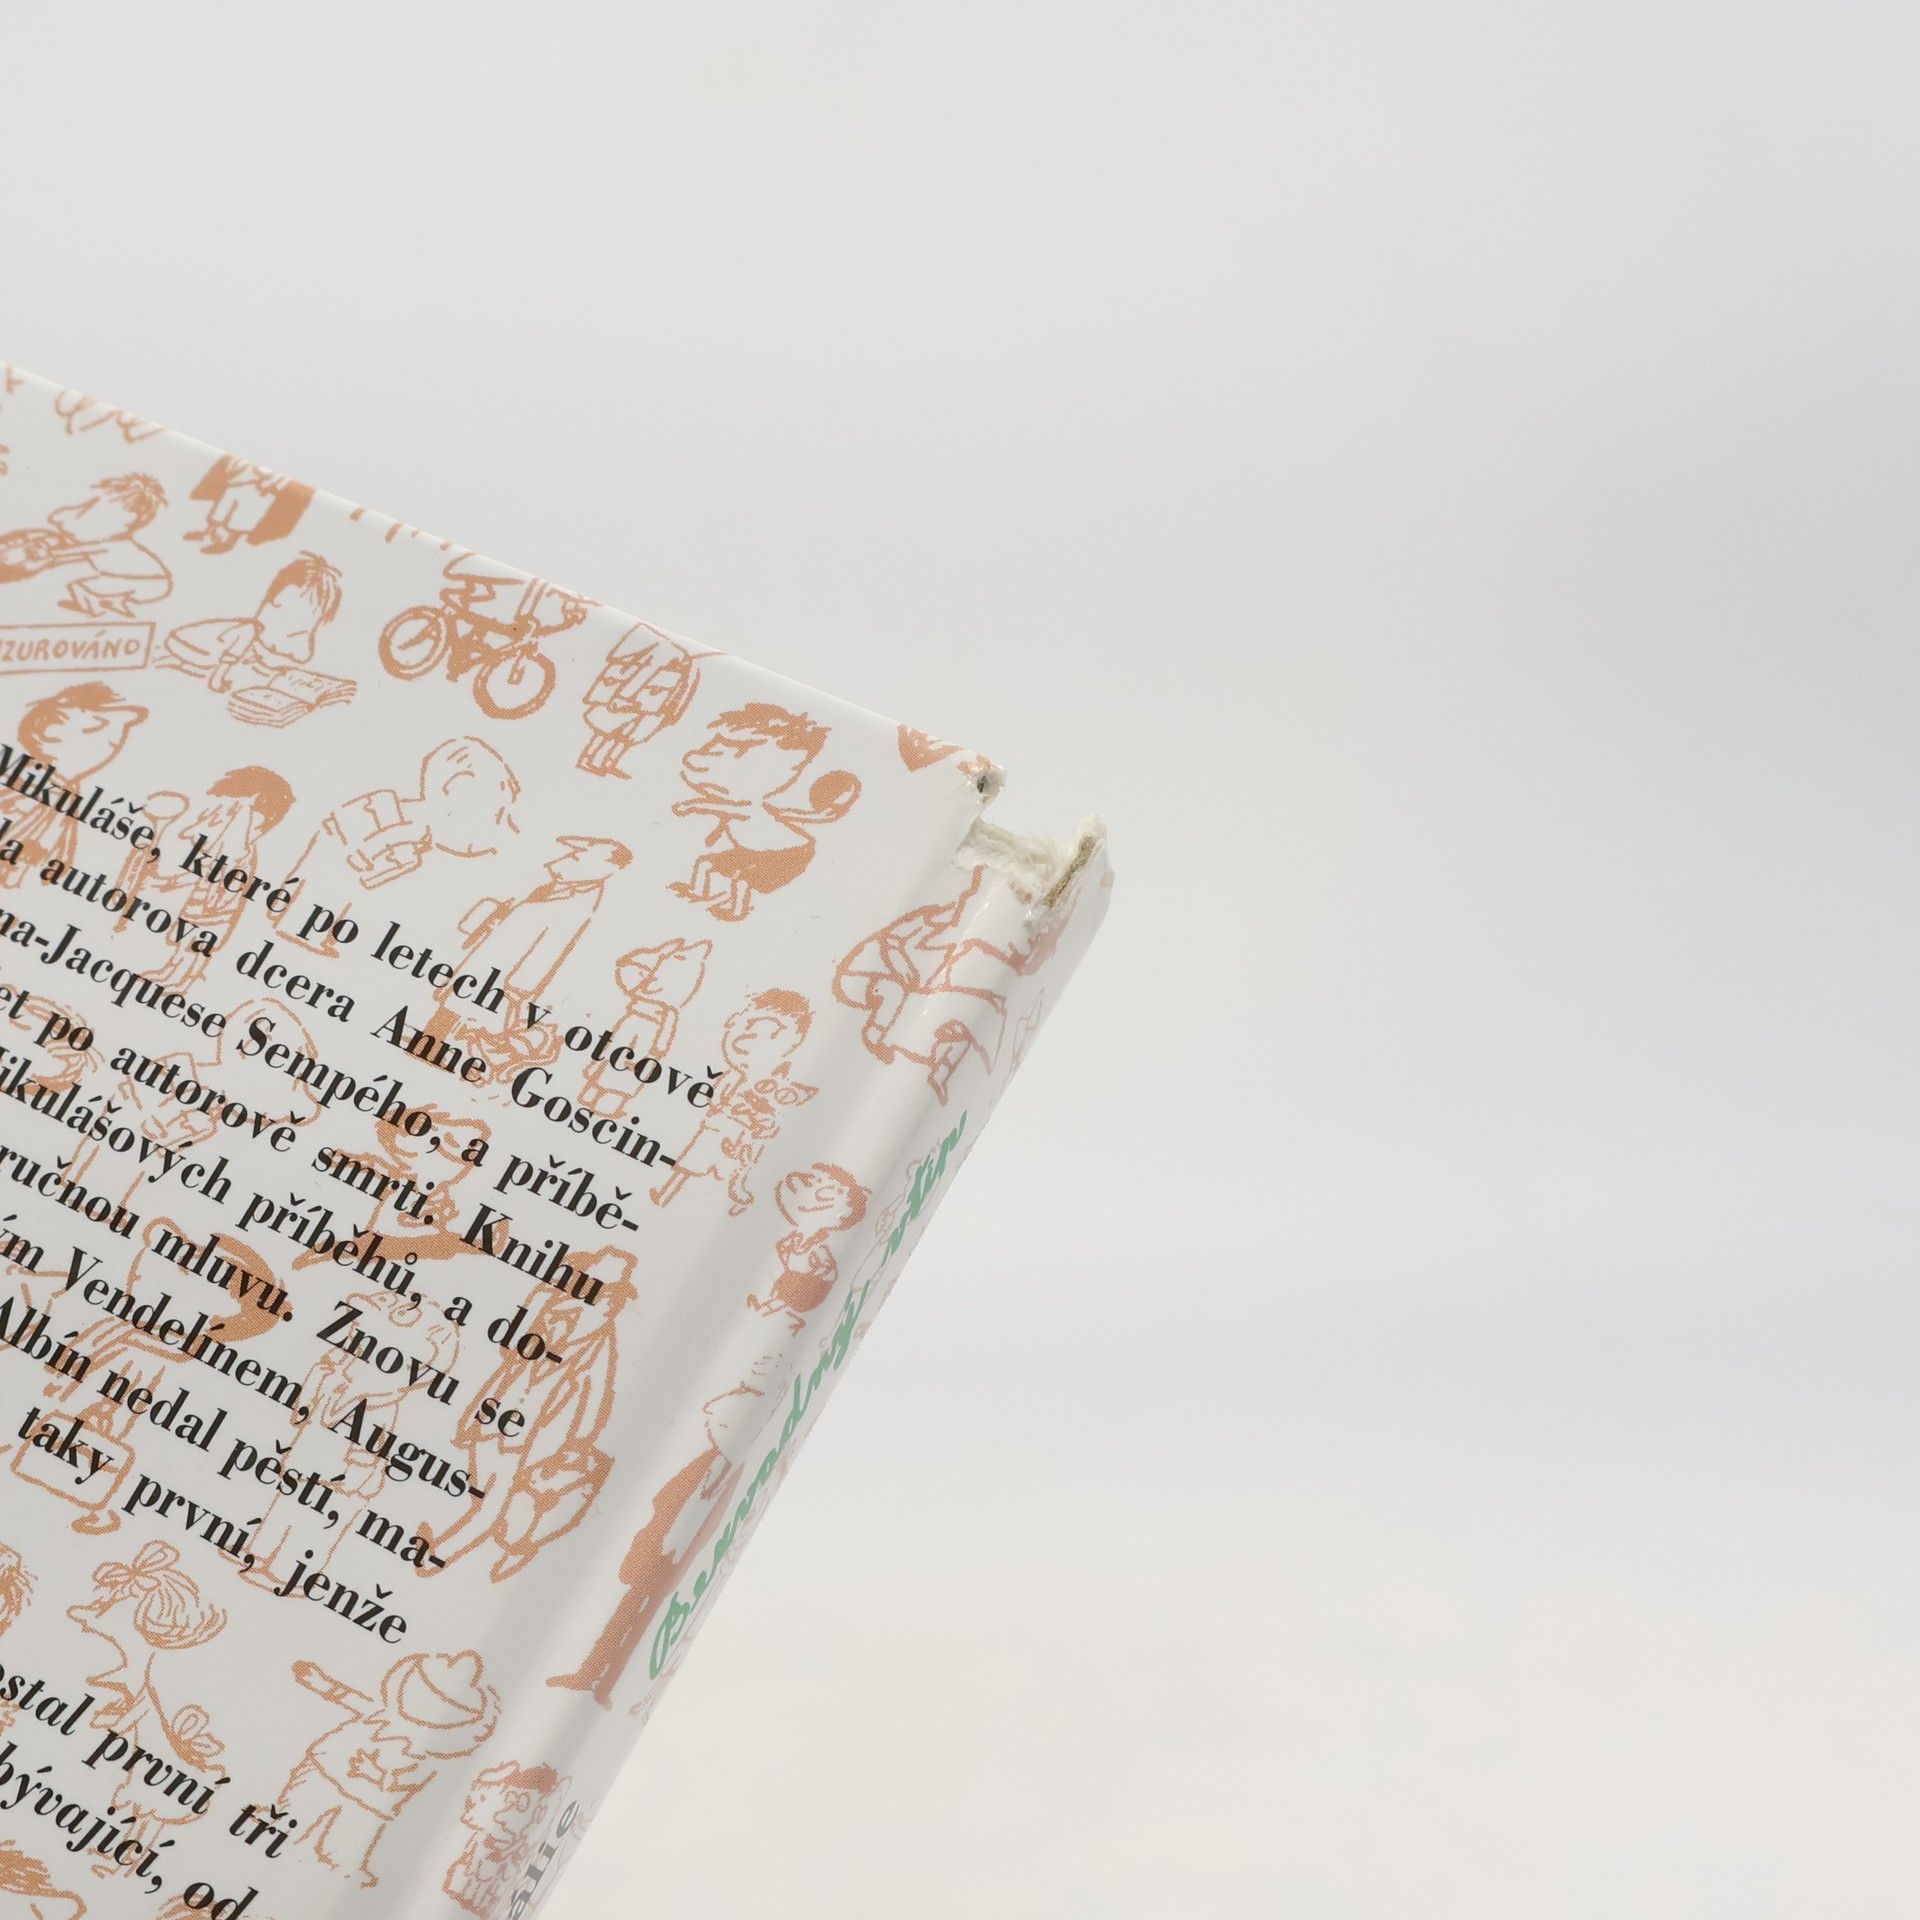 ZUROVÁNO
Mikuláše, které po letech v otcově
autorova dcera Anne Goscin-
na-Jacquese Sempého, a příbě-
et po autorově smrti. Knihu
ikulášových příběhů, a do-
ručnou mluvu. Znovu se
ým Vendelínem, Augus-
Albín nedal pěstí, ma-
taky první, jenže
ostal první tři
bývající, od